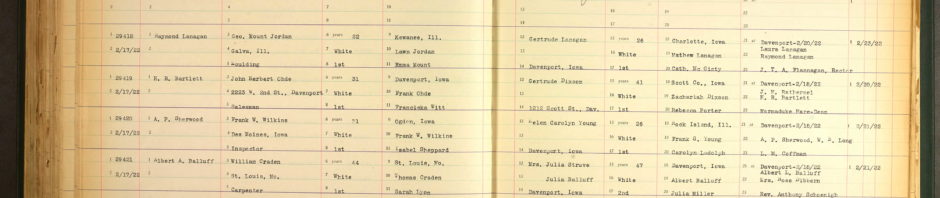 29418 Raymond Lanagan Geo. Mount Jordan 22 Kewanee, Ill. Gertrude Lanagan 26 Charlotte, Iowa Davenport-2/20/22 2/23/22
2/17/22 Galva, Ill. White Lawn Jordan White Mathew Lanagan Laura Lanagan
Raymond Lanagan
Moulding 1st Emma Mount Davenport, Iowa 1st Cath. Mc Ginty J. T. A. Flannagan, Rector
29419 E. R. Bartlett John Herbert Ohde years 31 Davenport, Iowa Gertrude Dixson years 41 Scott Co., Iowa Davenport-2/18/22 2/20/22
2/17/22 2223 W. 2nd St., Davenport White Frank Ohde White Zachariah Dixson
E. R. Bartlett
Salesman 1st Franciska Witt 1212 Scott St., Dav. 1st Rebecca Porter Marmaduke Hare-Dean
29420 A. P. Sherwood Frank W. Wilkins years Ogden, Iowa Helen Carolyn Young years 26 Rock Island, Ill. Davenport-2/18/22 2/21/22
2/17/22 Des Moines, Iowa White Frank W. Wilkins White Frank G. Young A. P. Sherwood, W. R. Lang
Inspector 1st Isabel Sheppard Davenport, Iowa 1st Carolyn Ludolph L. M. Coffman
29421 Albert A. Balluff William Craden years 44 St. Louis, Mo. Mrs. Julia Struve years 47 Davenport, Iowa Davenport-2/18/22 2/21/22
2/17/22 St. Louis, Mo. White Thomas Craden Julia Balluff White Albert Balluff Albert A. Balluff
Mrs. Rose
Carpenter 1st Sarah Lyon Davenport, Iowa 2nd Julia Miller Rev. Anthony